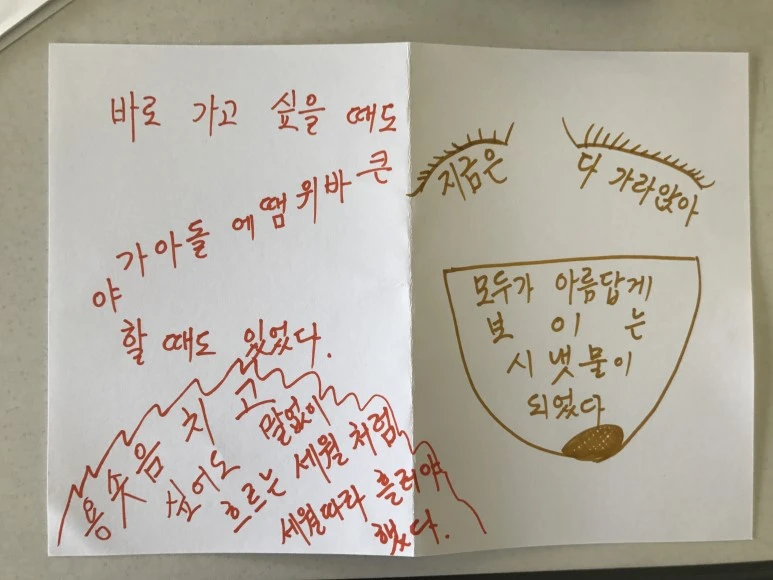 바로 가고 싶을 때도
큰 바위 땜에 돌아가
야
할 때도 있었다.
용솟음 치고
싶어도 말없이
흐르는 세월 처럼
세월따라 흘러야
했다.
지금은 다 가라앉아
모두가 아름답게
보 이 는
시 냇 물이
되었다